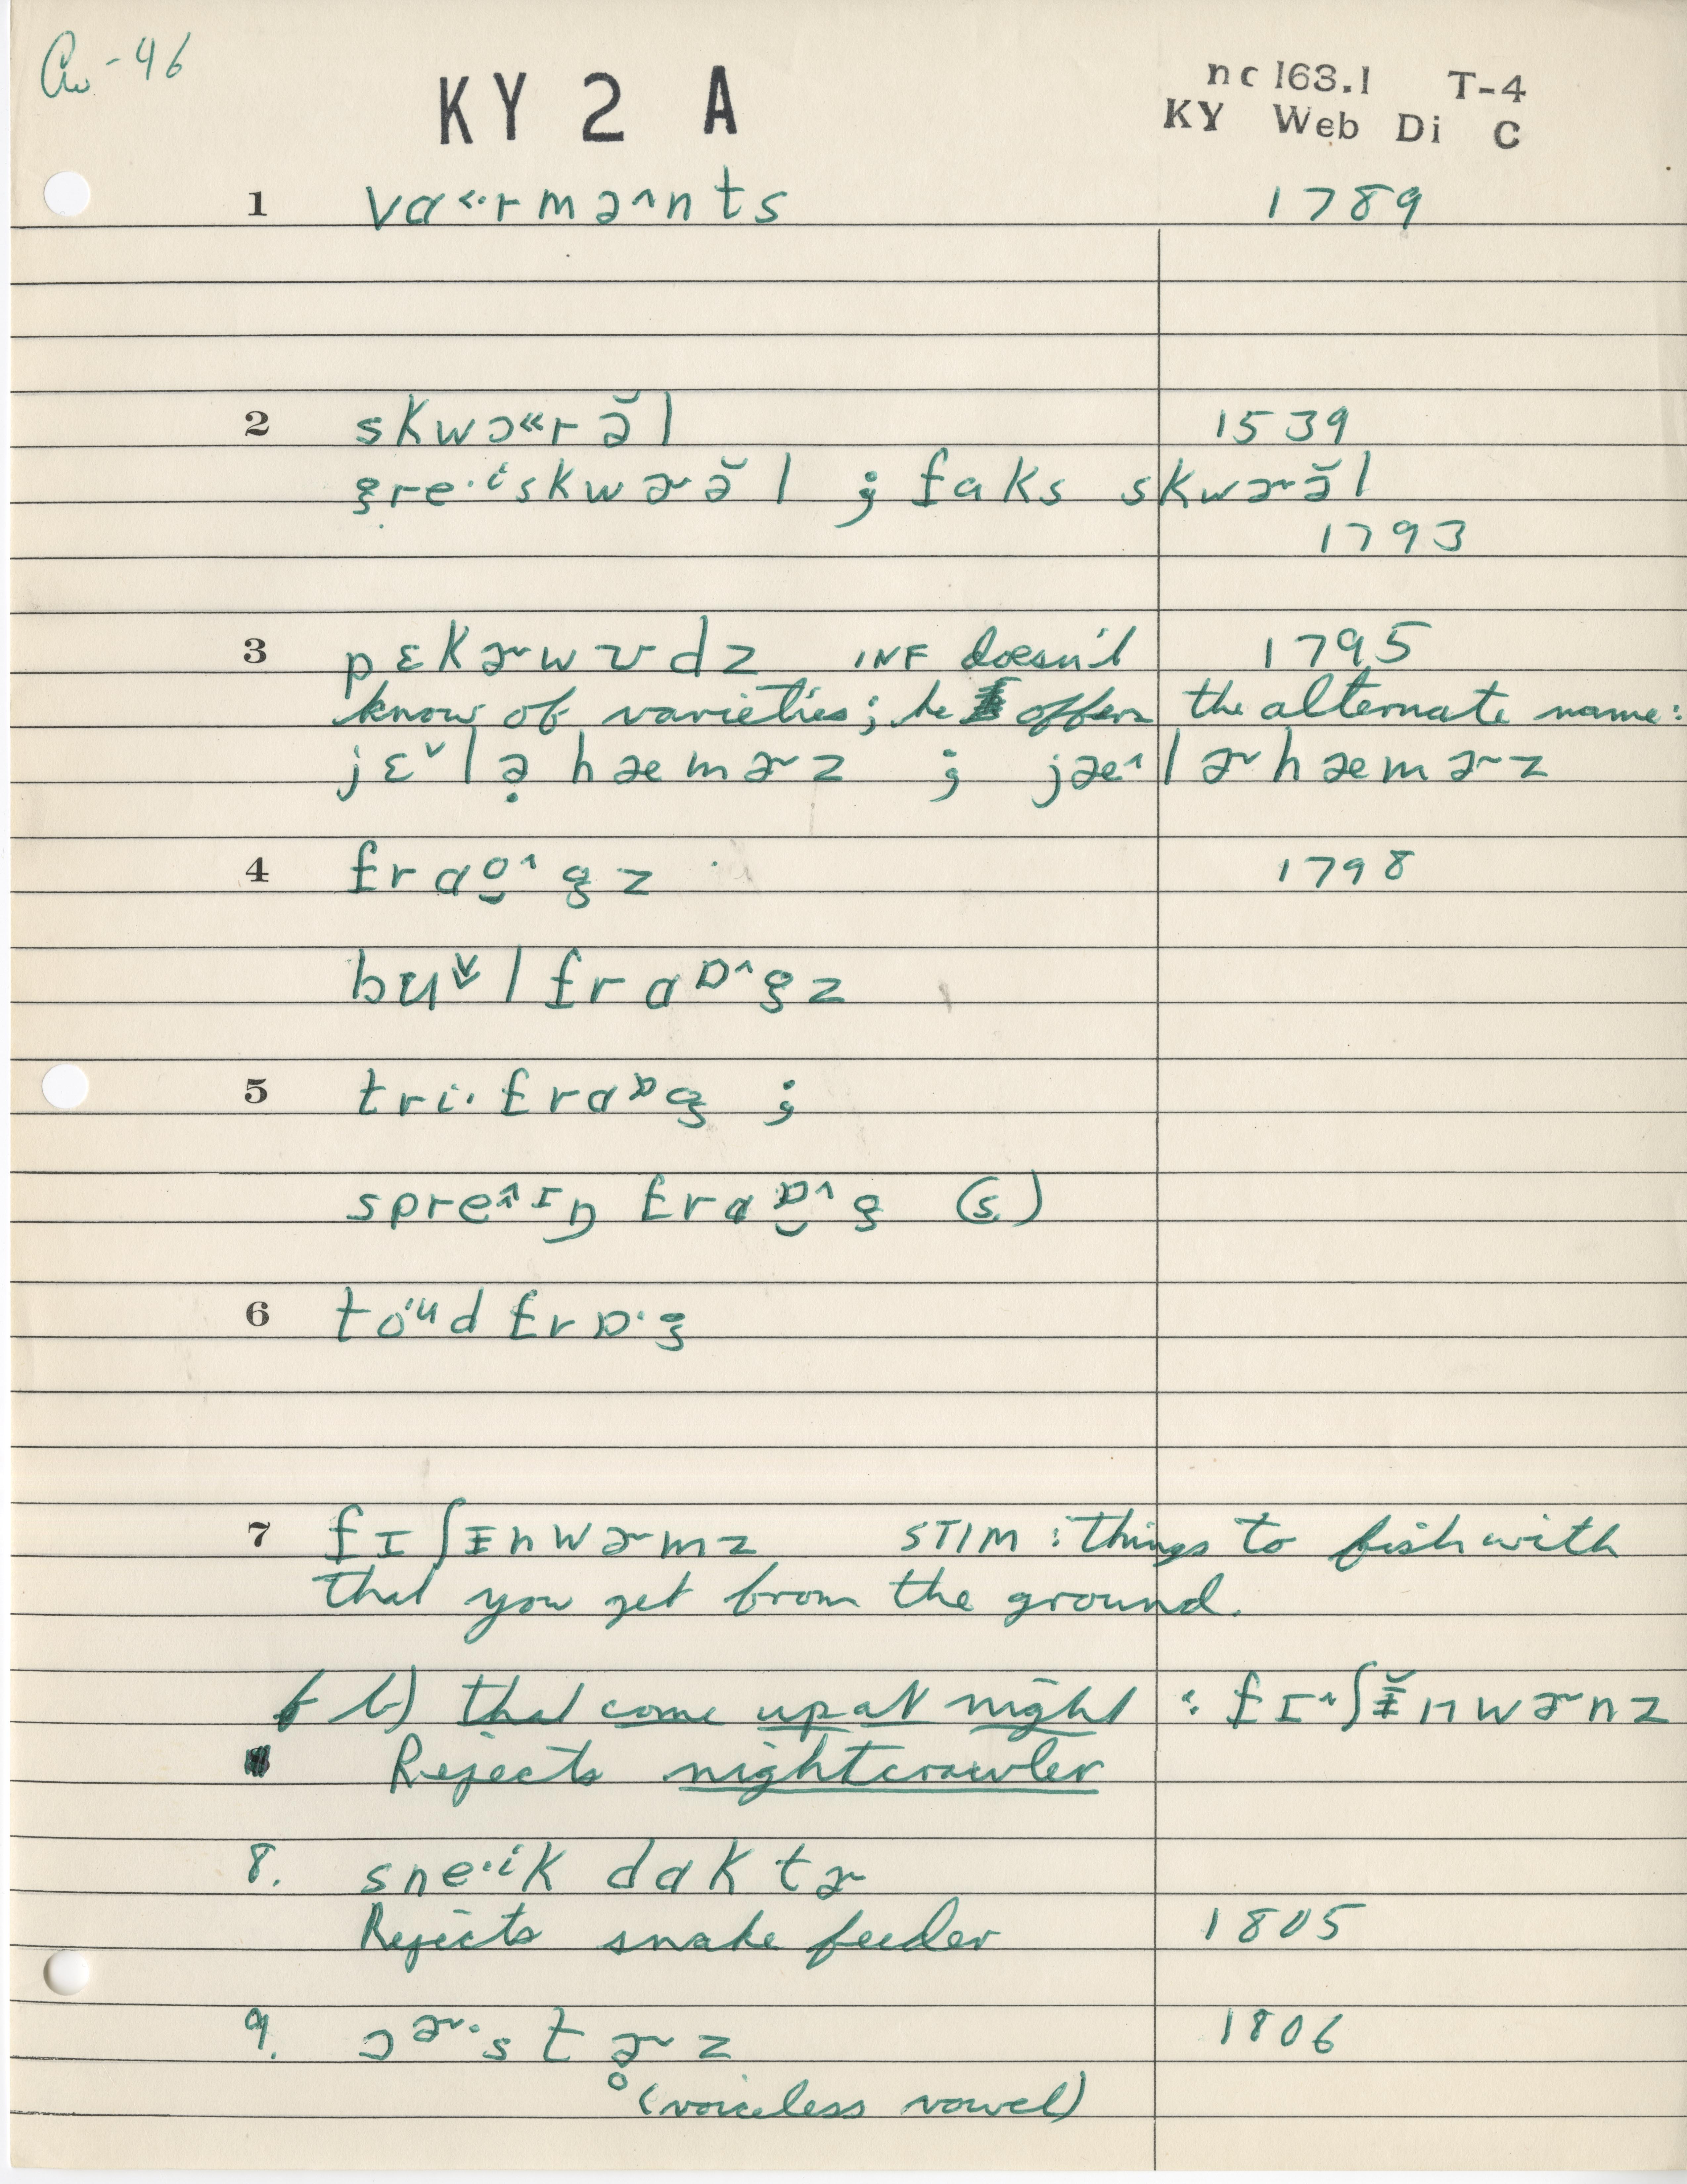 Aw-46
KY 2 A
nc 163.1 T-4
KY Web Di C
1 vɑ˂·rmə^nts 1789
2 skwɔ«rə̆l 1539
gre·ⁱskwɚə̆l ; faks skwɚə̆l
1793
3 pɛkɚwʊdz INF doesn't 1795
know of varieties; he offers the alternate name:
jɛˇlə̣hæmɚz ; jæ^lɚhæmɚz
4 frɑo̯^gz 1798
bʉ̌lfrɑɒ^gz
5 tri·frɑɒg ;
spre^ɪŋ frɑɒ̯^g (s)
6 to·ʉd frɒ·g
7 fɪʃɪ̵nwɚmz STIM : things to fish with
that you get from the ground.
b) that come up at night : fɪ^ʃɪ̵̆nwɚnz
Rejects nightcrawler
8. sne·ⁱk dɑktɚ
Rejects snake feeder 1805
9. ɔɚ·stɚ̥z 1806
(voiceless vowel)